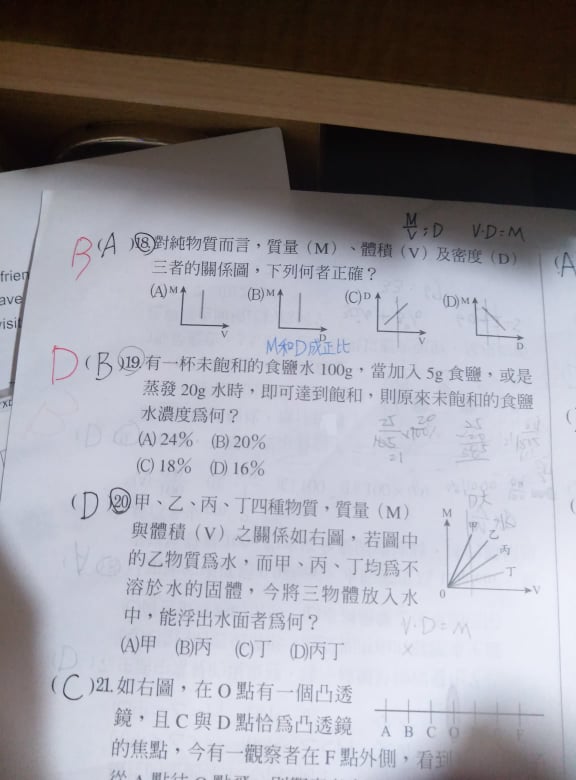 frien
ave
visit
M/V=D V·D=M
B (A)18.對純物質而言，質量（M）、體積（V）及密度（D）
三者的關係圖，下列何者正確？
(A) M V (B) M D (C) D V (D) M D
M和D成正比
D (B)19.有一杯未飽和的食鹽水100g，當加入5g食鹽，或是
蒸發20g水時，即可達到飽和，則原來未飽和的食鹽
水濃度為何？
(A) 24% (B) 20%
(C) 18% (D) 16%
(D)20.甲、乙、丙、丁四種物質，質量（M）
與體積（V）之關係如右圖，若圖中
的乙物質為水，而甲、丙、丁均為不
溶於水的固體，今將三物體放入水
中，能浮出水面者為何？
(A)甲 (B)丙 (C)丁 (D)丙丁
M 甲 乙 丙 丁 0 V
V·D=M
(C)21.如右圖，在O點有一個凸透
鏡，且C與D點恰為凸透鏡
的焦點，今有一觀察者在F點外側，看到
A B C O F
(A